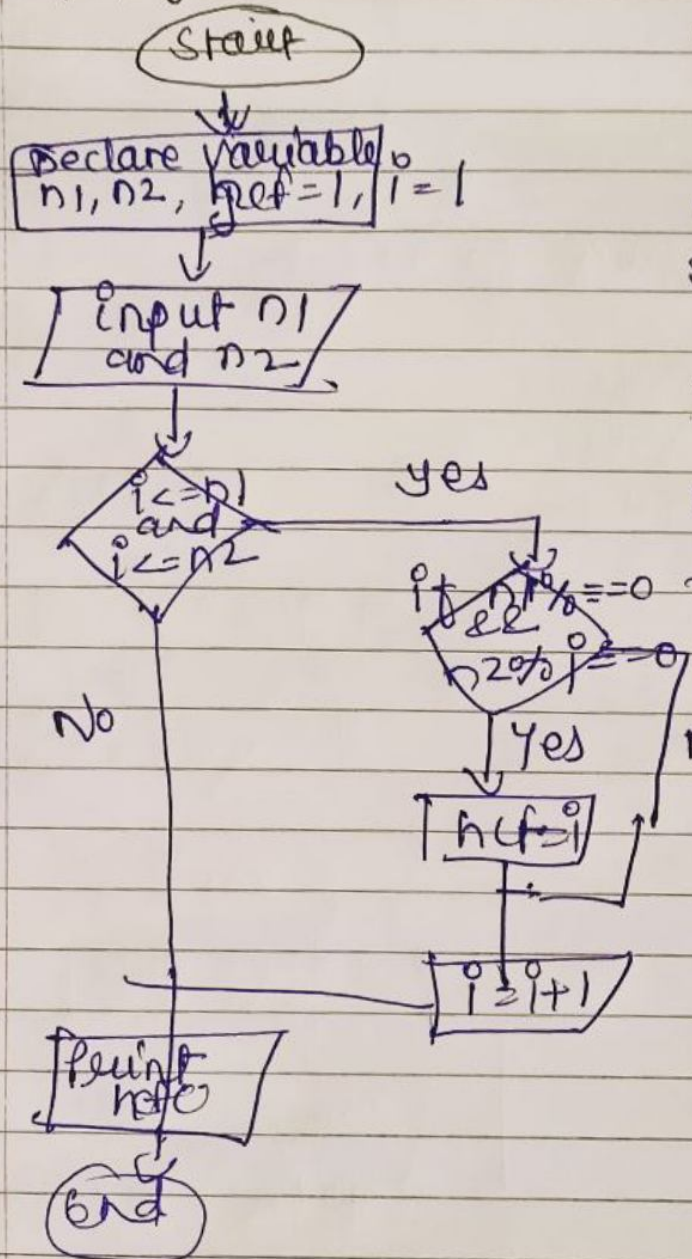 Start
Declare variable
n1, n2, hcf=1, i=1
input n1
and n2
i<=n1
and
i<=n2
yes
if n1%==0
&&
n2% i==0
No
Yes
hcf=i
i=i+1
Print
hcf
End